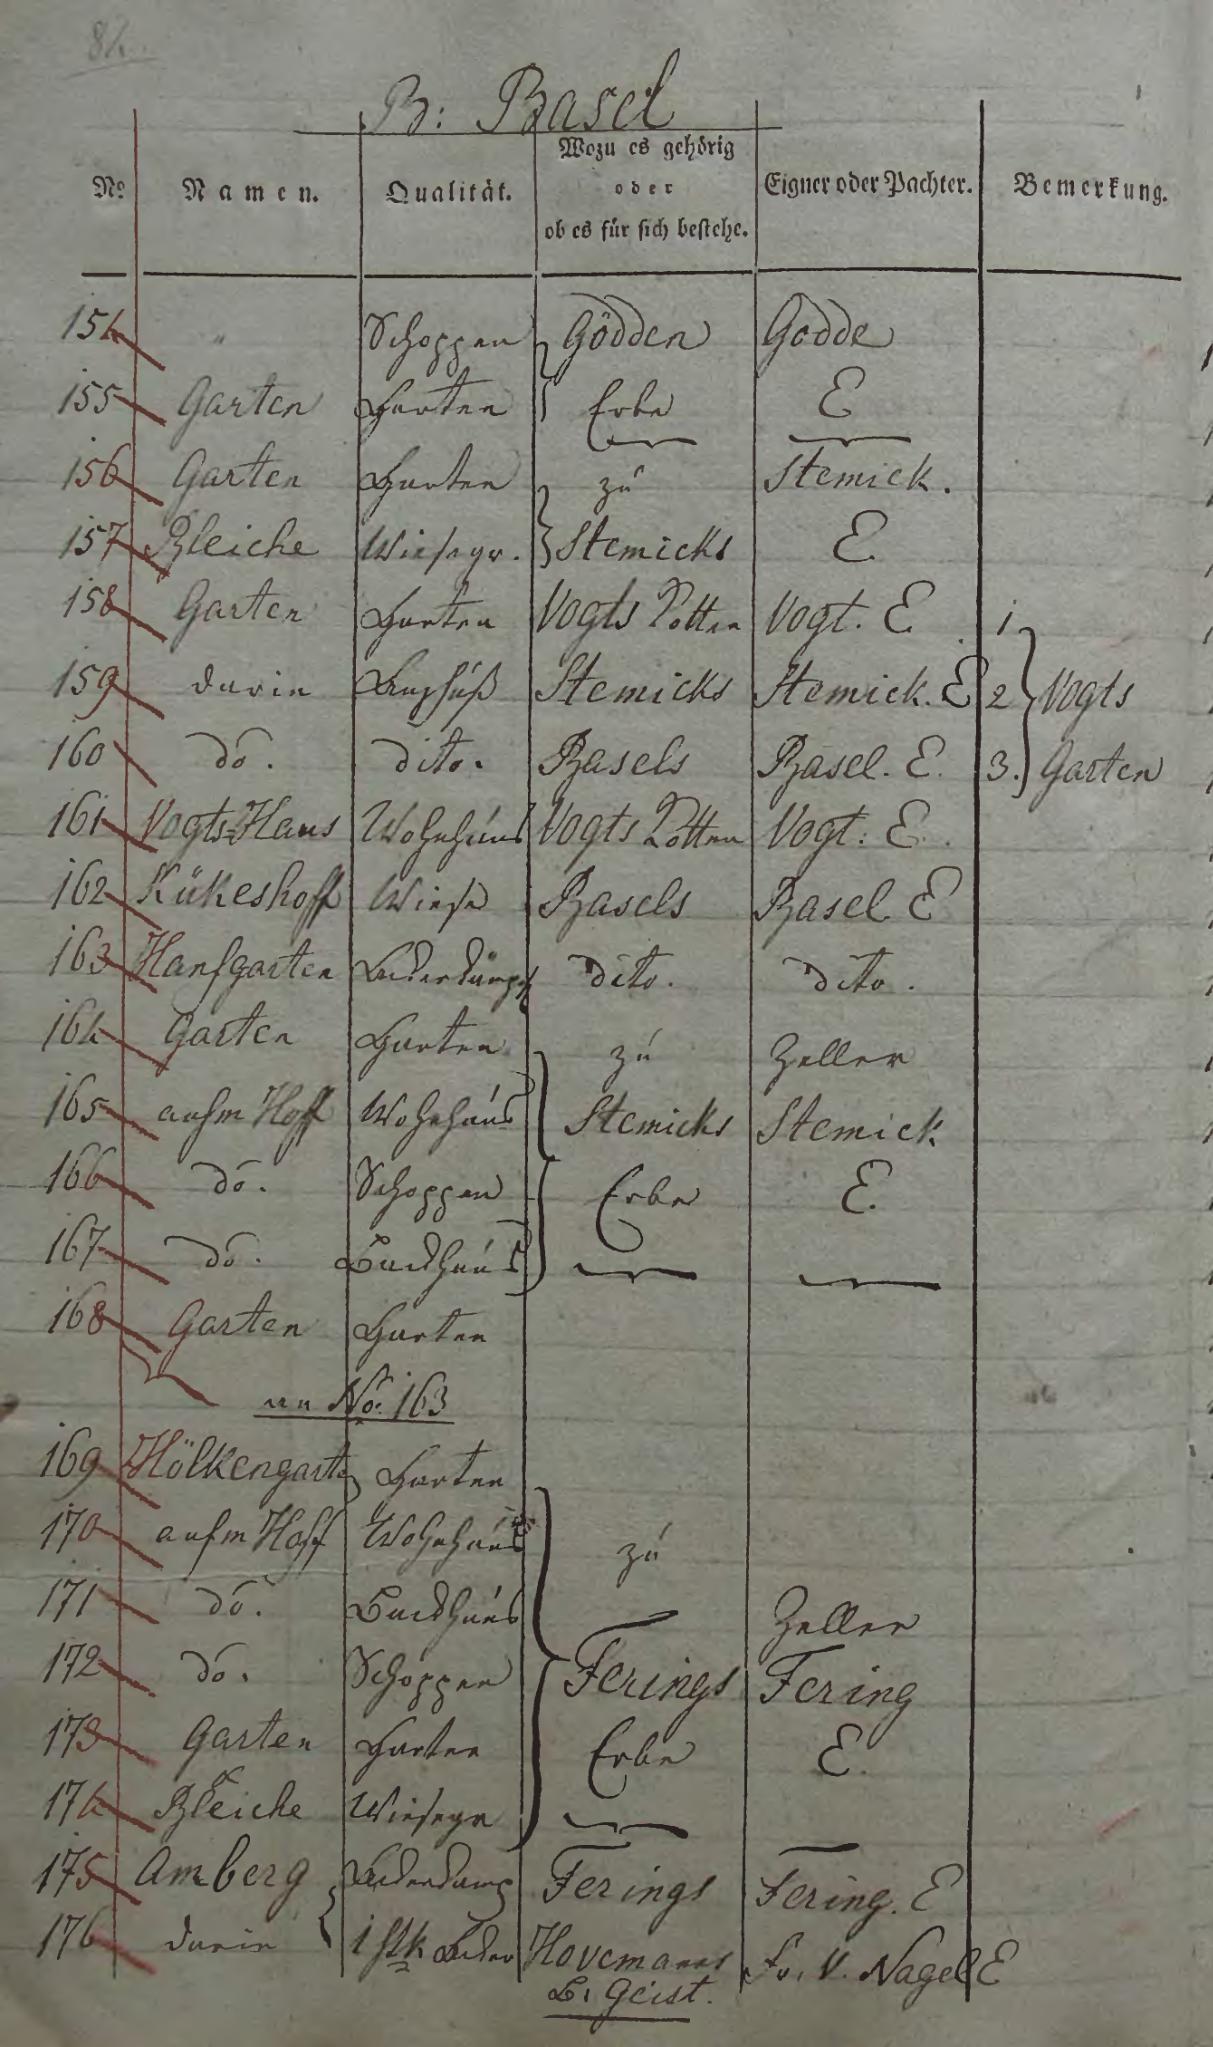 84.
B: Basel
No. Namen. Qualität. Wozu es gehörig oder ob es für sich bestehe. Eigner oder Pachter. Bemerkung.
154 " Schoppen Gödden Godde
155 Garten Garten Erbe E
156 Garten Garten zu Stemick.
157 Bleiche Wiesegr. Stemicks E.
158 Garten Garten Vogts Kotten Vogt. E 1
159 darin Stemicks Stemick. E 2 Vogts
160 do. dito. Basels Basel. E. 3. Garten
161 Vogts=Haus Wohnhaus Vogts Kotten Vogt: E.
162 Kükeshoff Wiese Basels Basel E
163 Hanfgarten dito. dito.
164 Garten Garten zu Zeller
165 aufm Hoff Wohnhaus Stemicks Stemick
166 do. Schoppen Erbe E.
167 do. Backhaus
168 Garten Garten
an No. 163
169 Hölkengarten Garten
170 aufm Hoff Wohnhaus zu
171 do. Backhaus Zeller
172 do. Schoppen Ferings Fering
173 Garten Garten Erbe E.
174 Bleiche Wiesegr
175 Amberg Ferings Fering. E
176 darin 1 stk Hovemanns Fr. V. Nagel E
B. Geist.